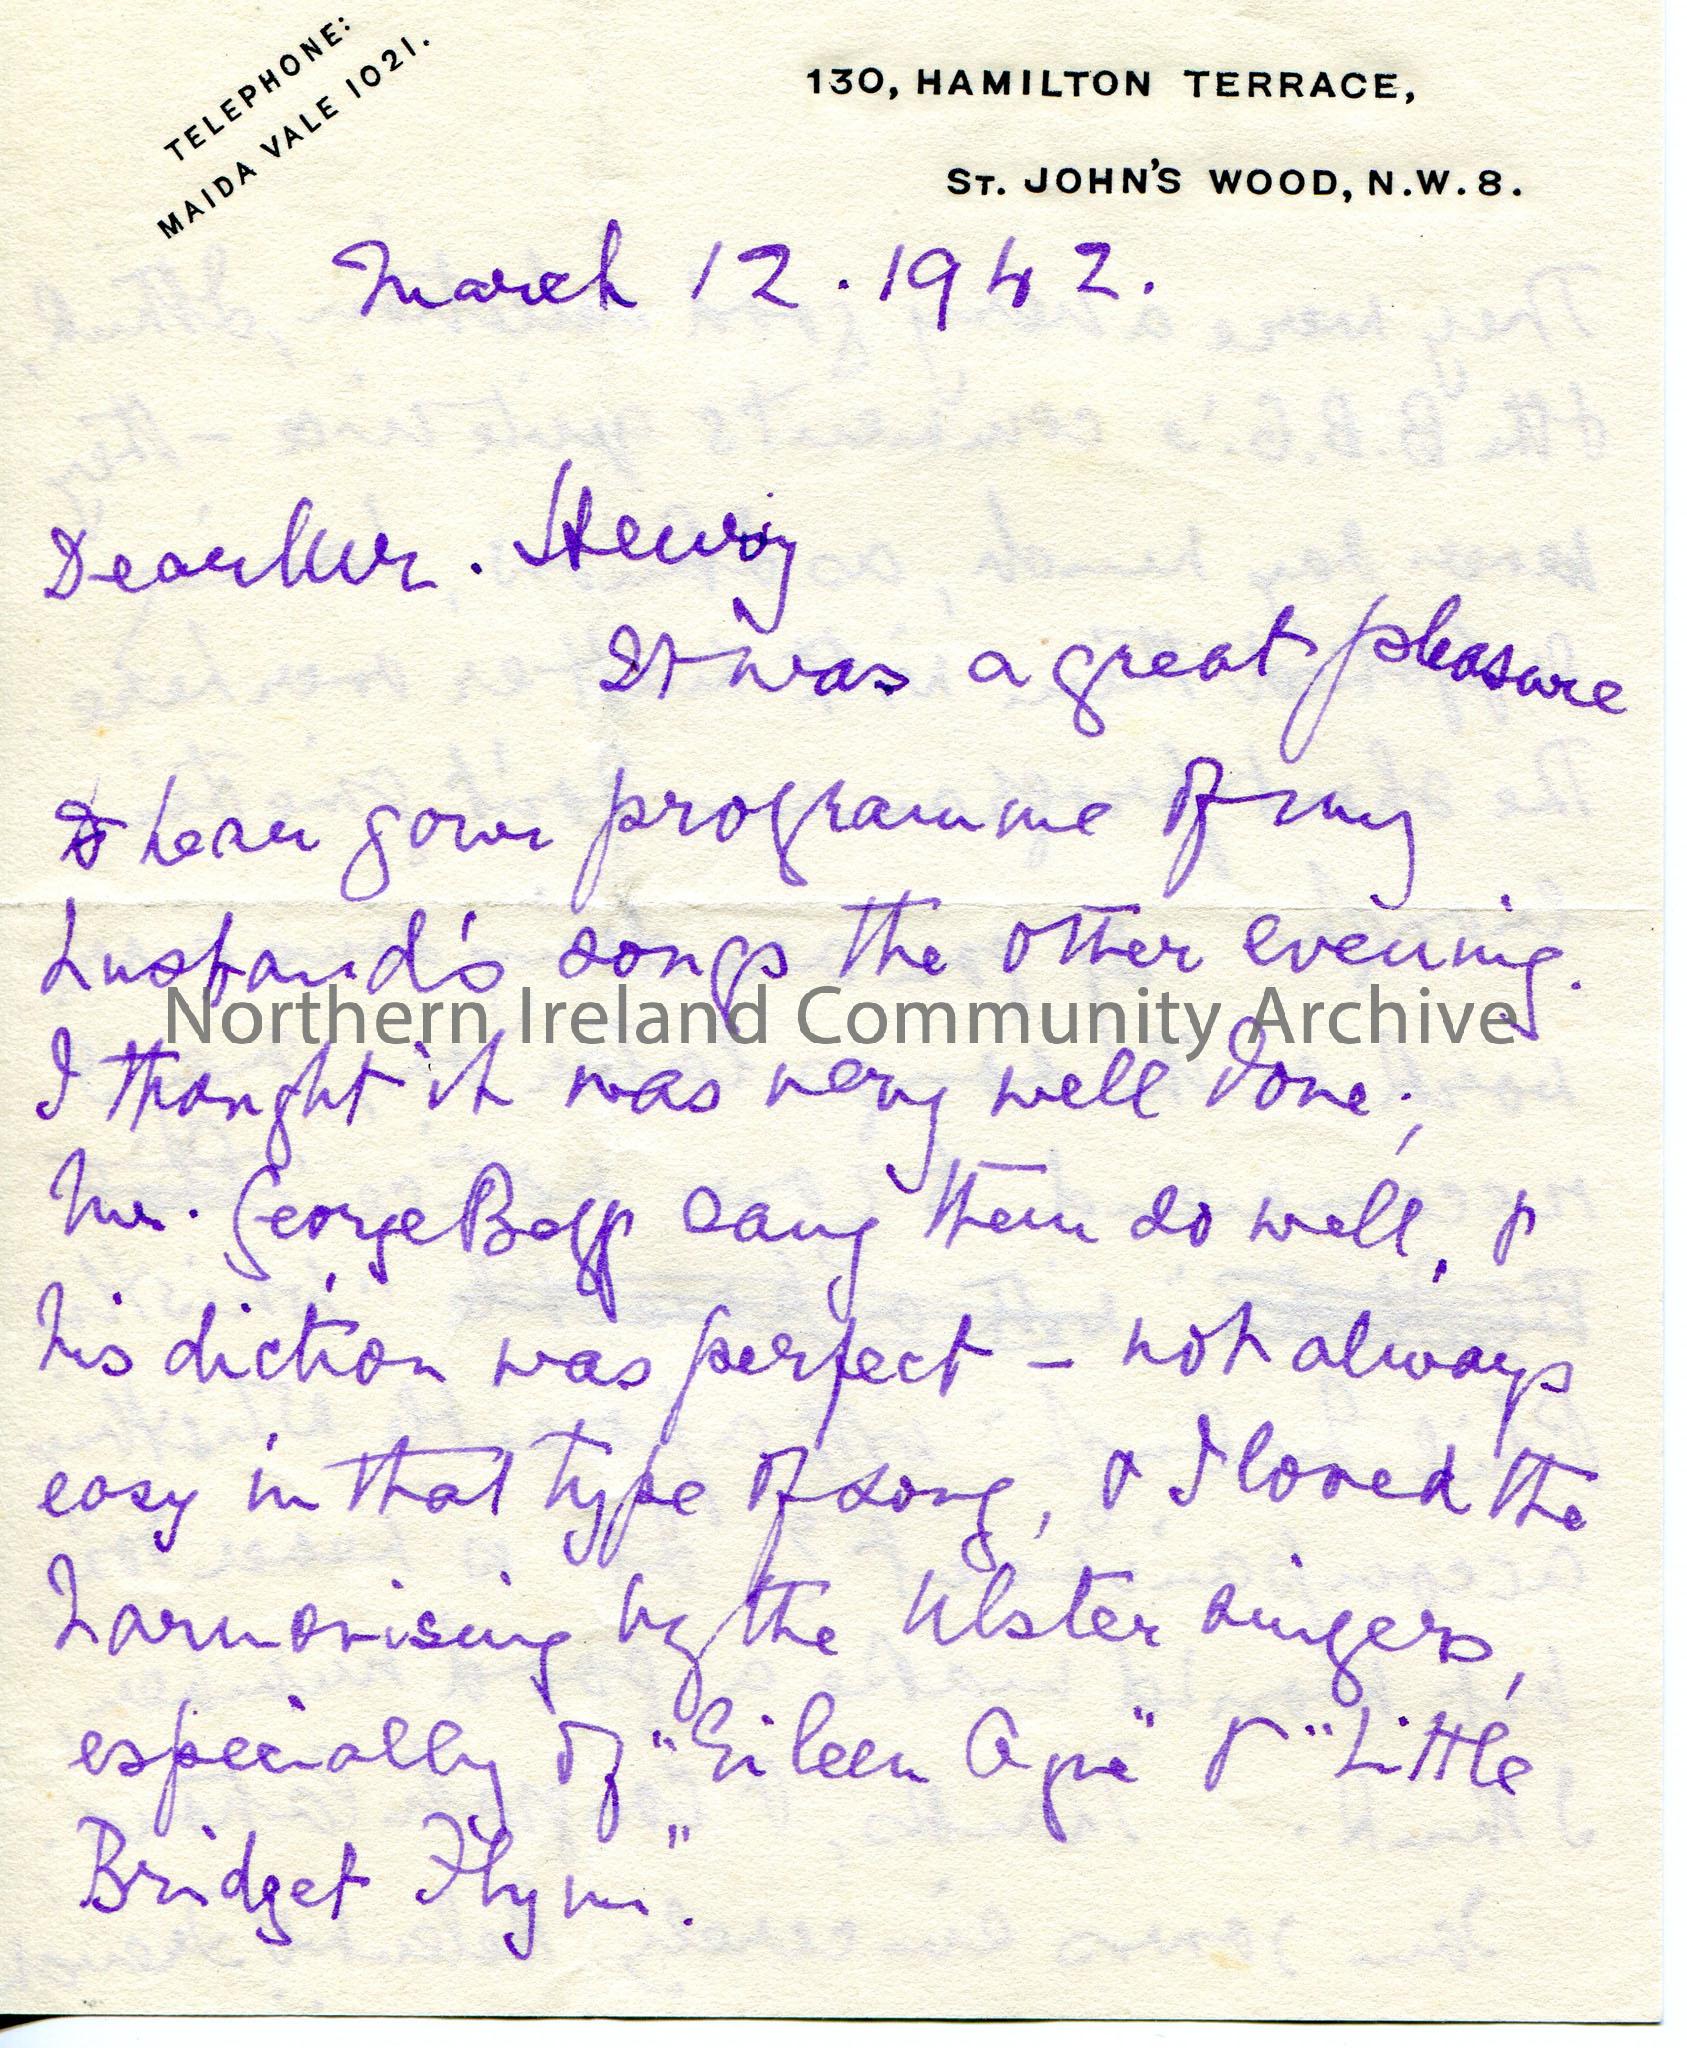 TELEPHONE:
MAIDA VALE 1021.
130, HAMILTON TERRACE,
ST. JOHN'S WOOD, N.W.8.
March 12. 1942.
Dear Mr. Henry
It was a great pleasure
to hear your programme of my
husband's songs the other evening.
Northern Ireland Community Archive
I thought it was very well done;
Mr. George Begg sang them so well, &
his diction was perfect – not always
easy in that type of song, & I loved the
harmonising by the Ulster singers,
especially of "Eileen Aroe" & "Little
Bridget Flynn".